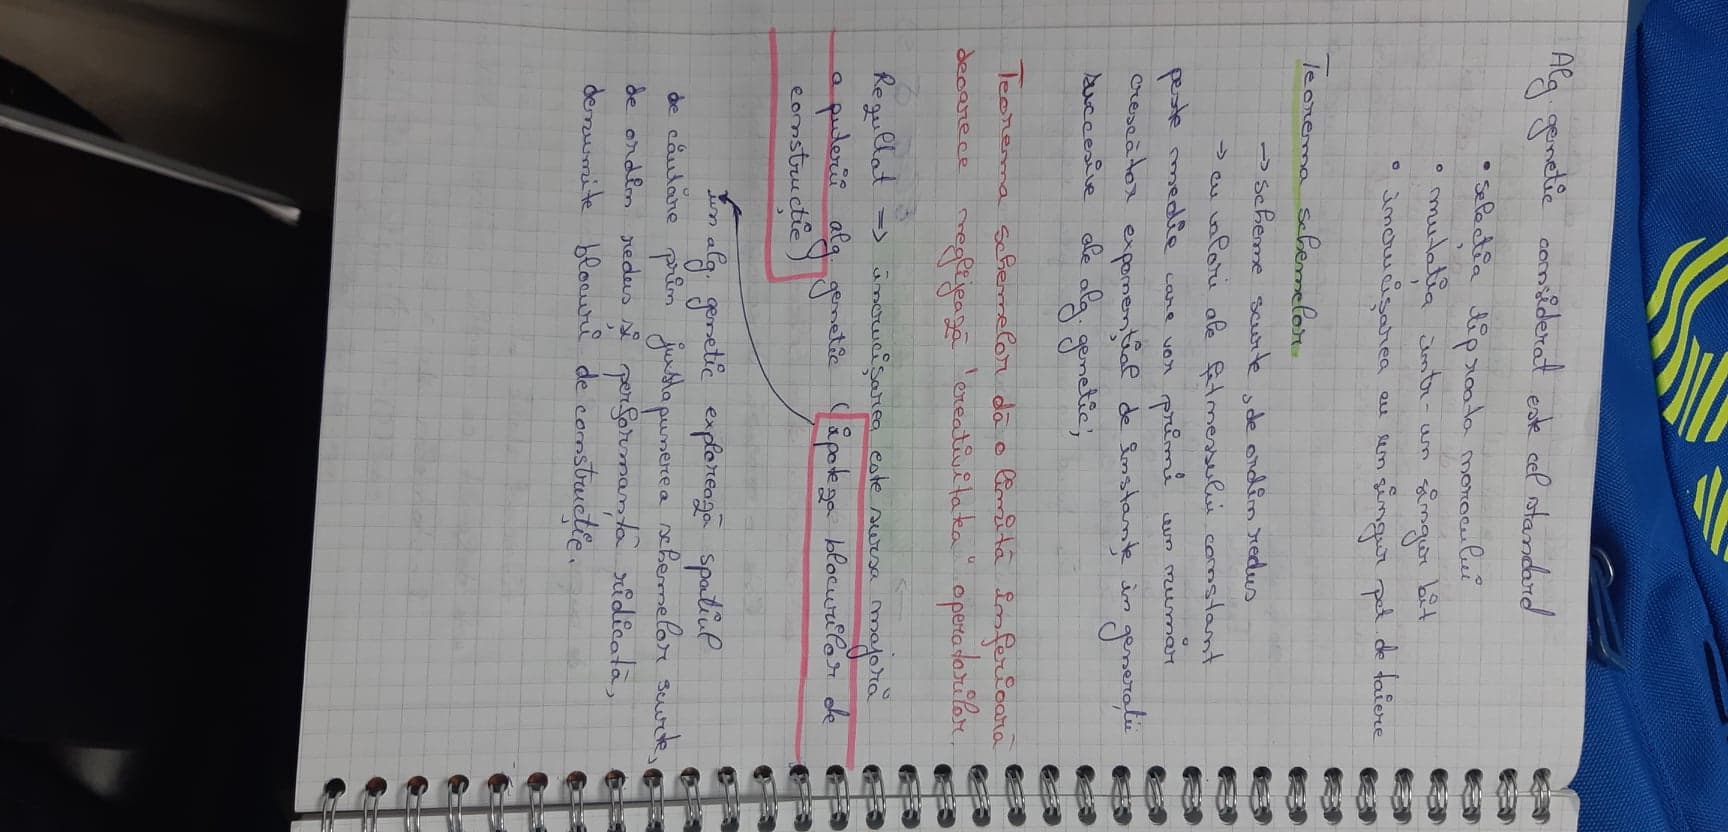 Alg. genetic considerat este cel standard
• selecția tip roata norocului
• mutația într-un singur bit
• încrucișarea cu un singur pct. de taiere
Teorema schemelor
→ scheme scurte, de ordin redus
→ cu valori ale fitnessului constant
peste medie care vor primi un număr
crescător exponențial de instanțe in generații
succesive ale alg. genetic;
Teorema schemelor dă o limită inferioară
deoarece neglijează "creativitatea" operatorilor.
Rezultat => incrucișarea este sursa majoră
a puterii alg. genetic (ipoteza blocurilor de
construcție)
Un alg. genetic explorează spatiul
de căutare prin juxtapunerea schemelor scurte,
de ordin redus și performanță ridicată,
denumite blocuri de construcție.